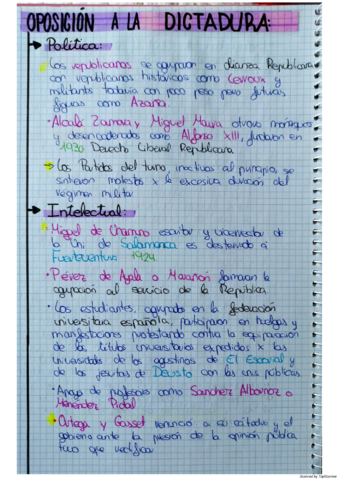 OPOSICIÓN A LA DICTADURA:
→ Política:
· Los republicanos se agrupan en alianza Republicana
con republicanos históricos como Lerroux y
militantes todavía con poco peso pero futuras
figuras como Azaña.
· Alcalá Zamora y Miguel Maura, otrora monárquicos
y desencadenados como Alfonso XIII, fundaron en
1930 Derecho Liberal Republicana
→ Los Partidos del turno, inactivos al principio, se
sintieron molestos x la excesiva duración del
régimen militar
→ Intelectual:
· Miguel de Unamuno escritor y vicerrector de
la Uni de Salamanca es desterrado a
Fuerteventura 1924.
· Pérez de Ayala o Marañón forman la
agrupación al servicio de la República
· Los estudiantes, agrupados en la federación
universitaria española, participaron en huelgas y
manifestaciones protestando contra la equiparación
de los títulos universitarios expedidos x las
universidades de los agustinos de El Escorial y
de los jesuitas de Deusto con las unis públicas.
· Apoyo de profesores como Sanchez Albornoz o
Menéndez Pidal
· Ortega y Gasset renunció a su cátedra y el
gobierno ante la presión de la opinión pública
tuvo que rectificar
Scanned by TapScanner